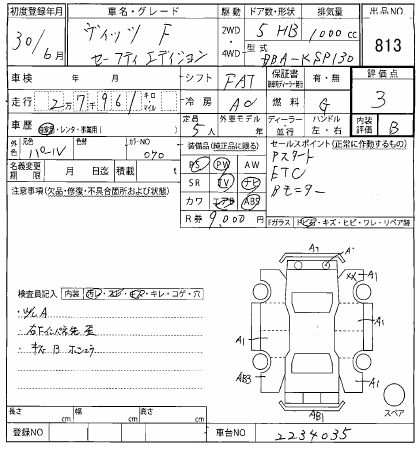 初度登録年月 車名・グレード 駆動 ドア数・形状 排気量 出品NO
30年/6月 ヴィッツ F 2WD 4WD 5 HB 1000cc 813
セーフティ エディション 型式 DBA-KSP130
車検 年 月 シフト FAT 保証書 有・無 評価点
走行 2万7千961 キロ マイル 冷房 AC 燃料 G 3
車歴 自家用・レンタ・事業用( ) 定員 5人 外車モデル ディーラー 並行 ハンドル 左・右 内装評価 B
外色 元色 パール 色替 カラーNO 070 装備品(純正品に限る) セールスポイント(正常に作動するもの)
名義変更期限 月 日迄 積載 t PS PW AW
注意事項(欠品・修復・不具合箇所および状態) SR TV ナビ
カワ エアB ABS
R券 9,000円
Pスタート
ETC
Bモニター
Fガラス トビ石・キズ・ヒビ・ワレ・リペア跡
検査員記入 内装 汚レ・スレ・キズ・キレ・コゲ・穴
A1 A XX A1
A1 A1
AB3 A1
AB1
スペア
長さ cm 幅 cm 高さ cm
登録NO 車台NO 2234035